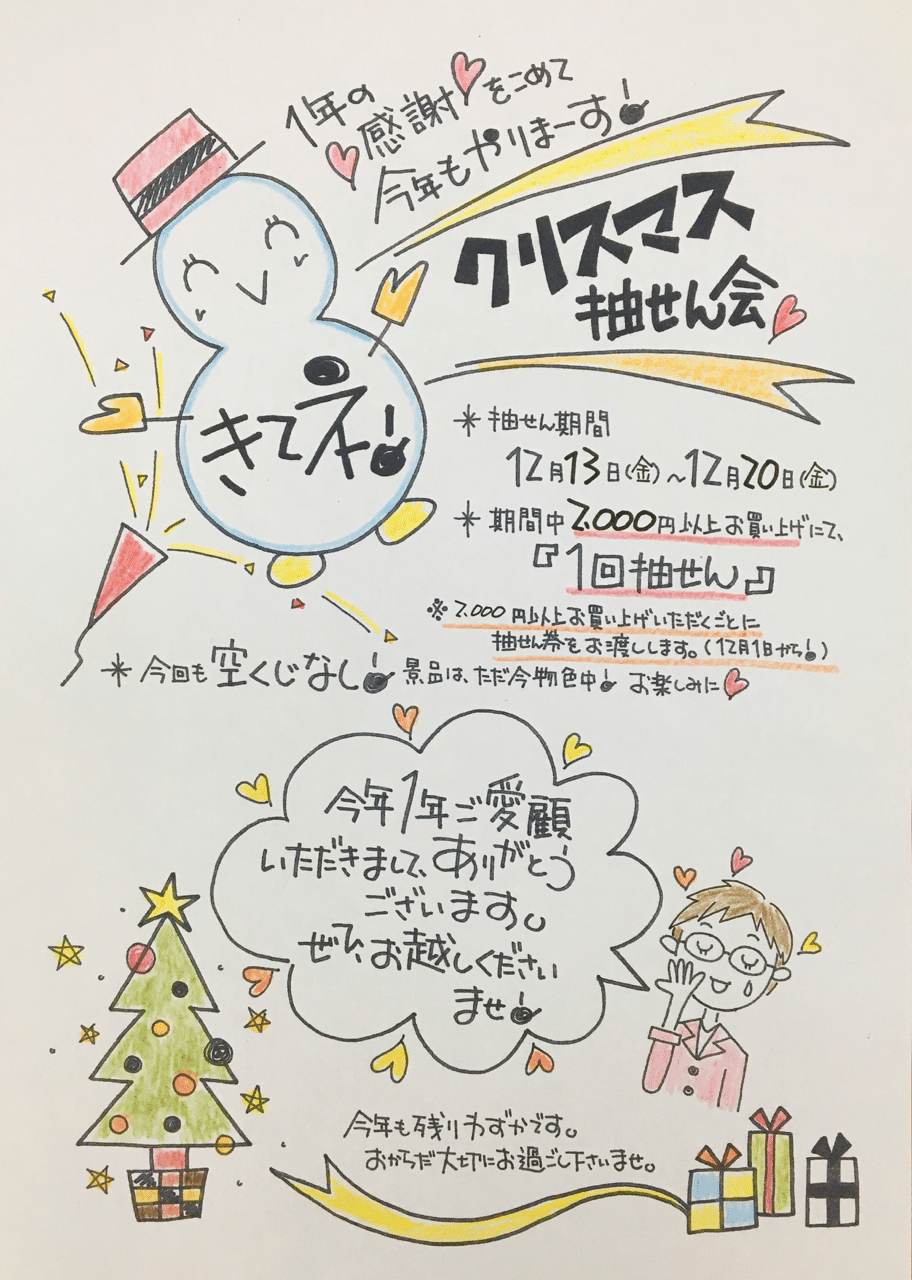 1年の
感謝をこめて
今年もやりまーす!
クリスマス
抽せん会
きてネ!
＊抽せん期間
12月13日(金)～12月20日(金)
＊期間中2,000円以上お買い上げにて、
『1回抽せん』
※2,000円以上お買い上げいただくごとに
抽せん券をお渡しします。(12月1日から!)
＊今回も空くじなし!景品は、ただ今物色中!お楽しみに
今年1年ご愛顧
いただきまして、ありがとう
ございます。
ぜひ、お越しください
ませ!
今年も残りわずかです。
おからだ大切にお過ごし下さいませ。